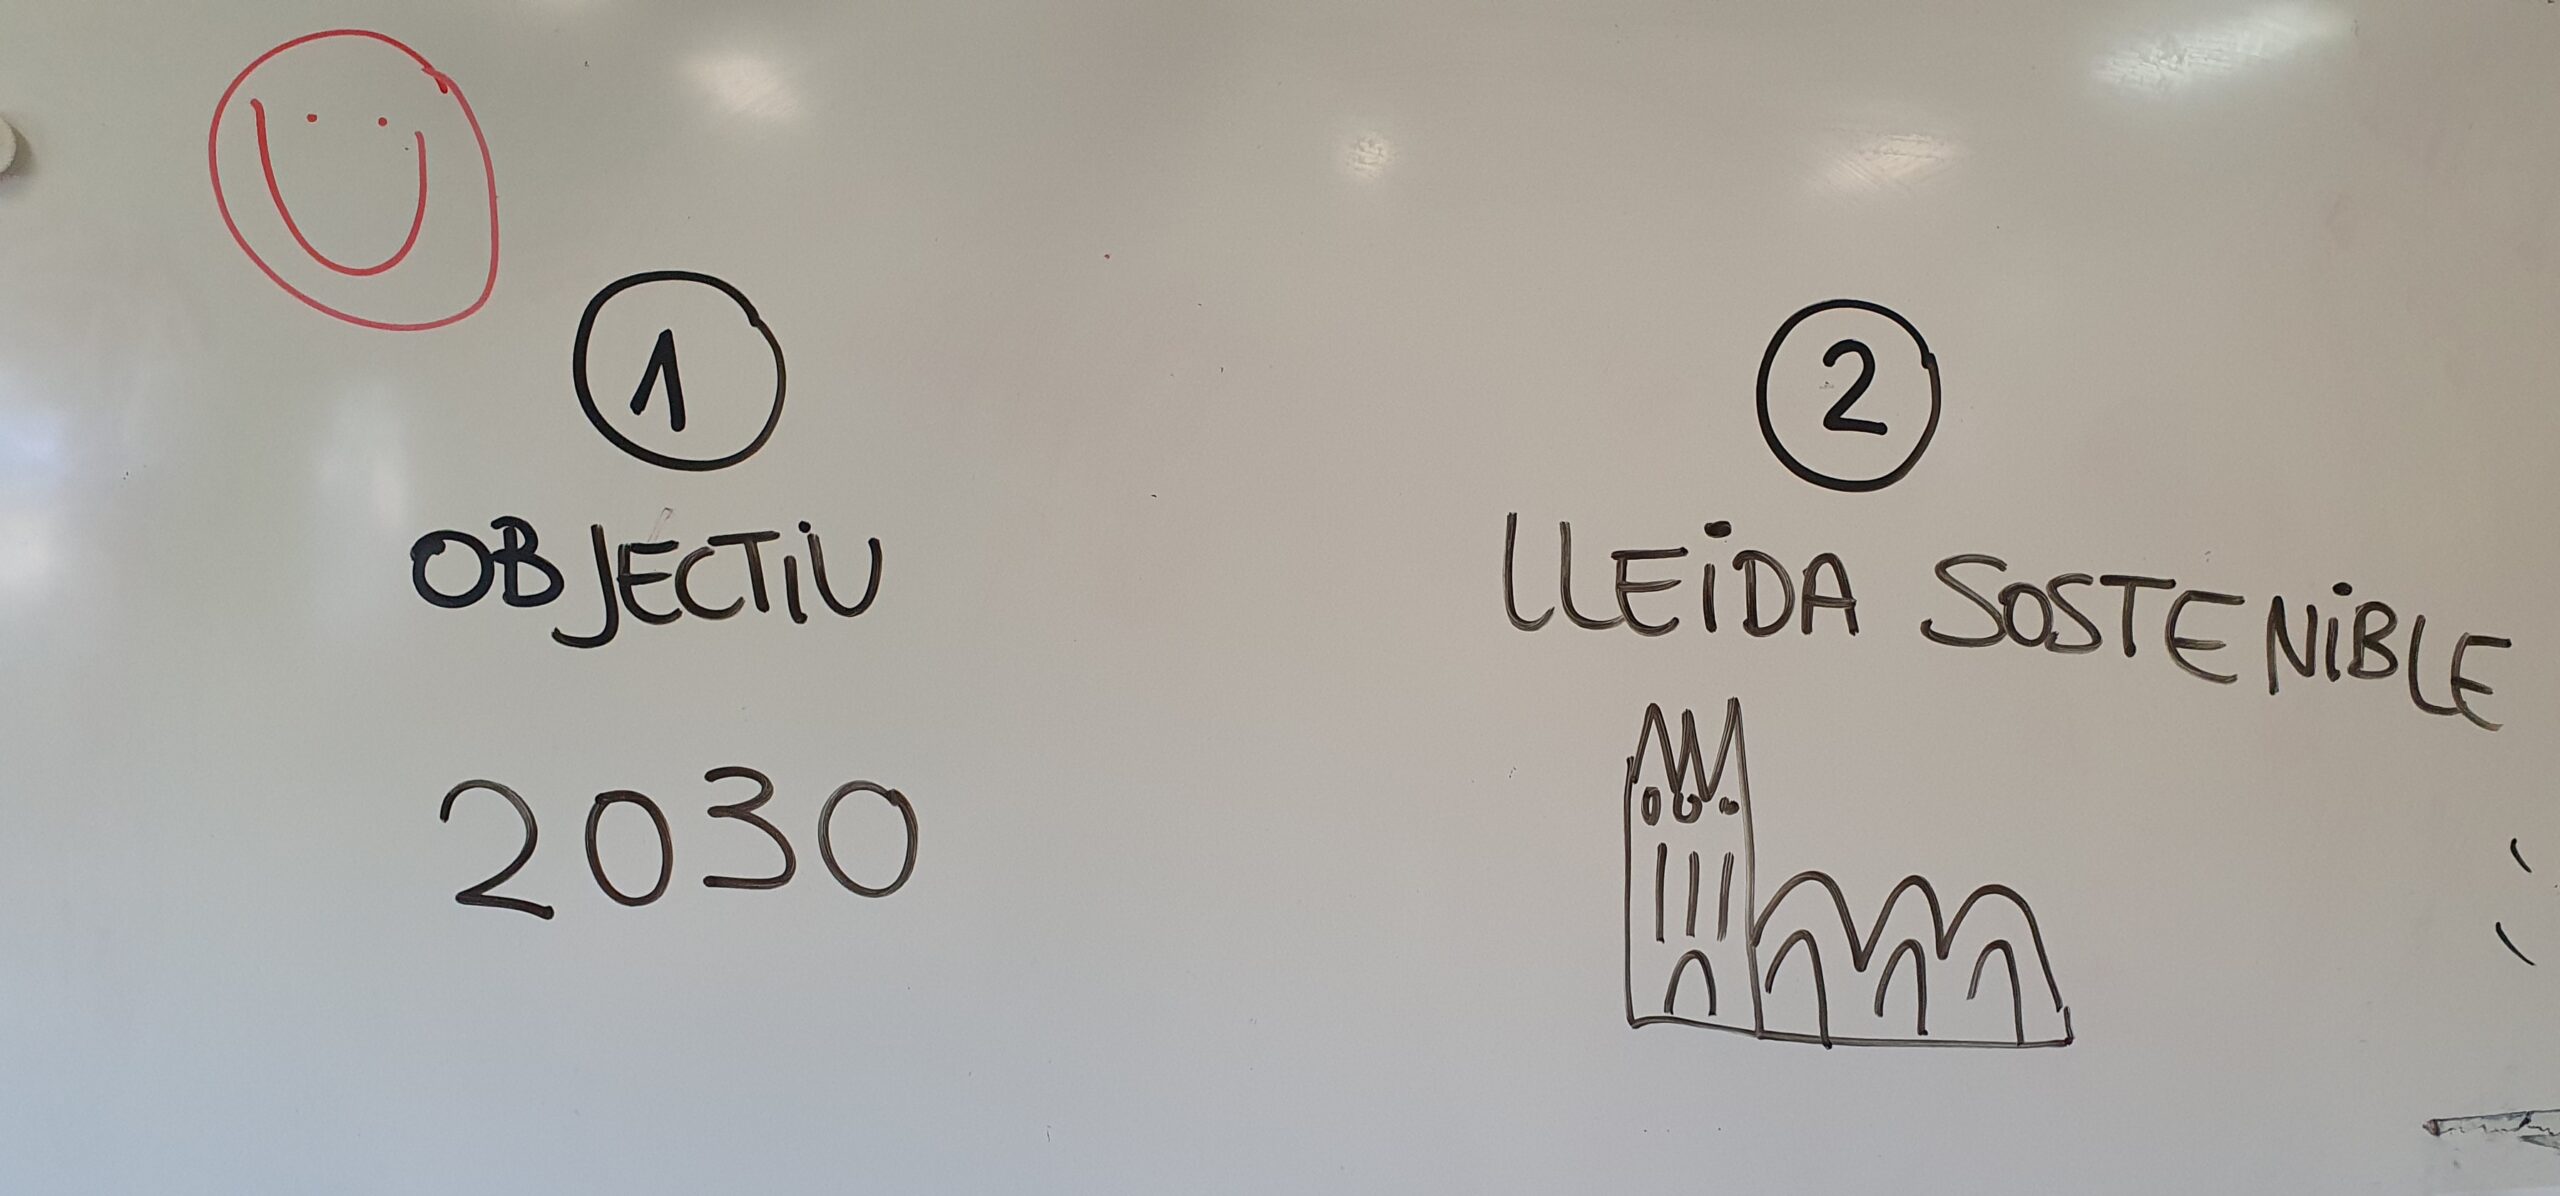 1
OBJECTIU
2030
2
LLEIDA SOSTENIBLE